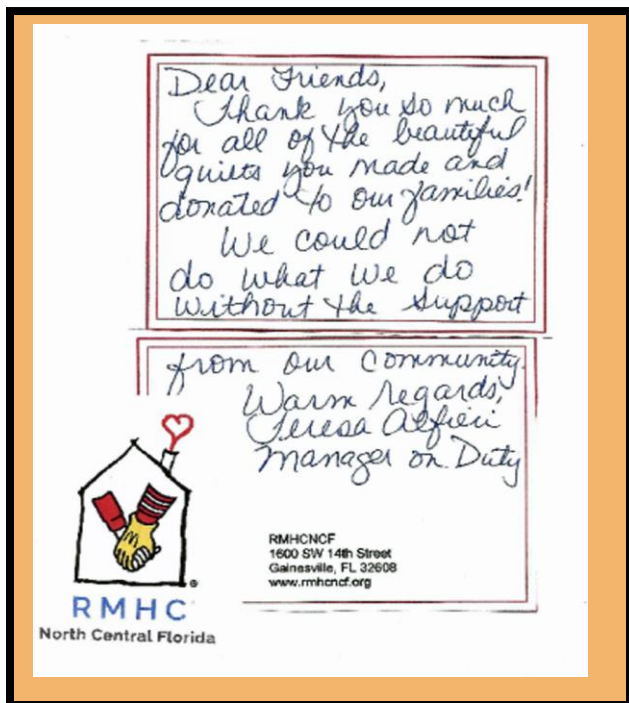 Dear Friends,
Thank you so much
for all of the beautiful
quilts you made and
donated to our families!
We could not
do what we do
without the support
from our community.
Warm regards,
Teresa Alfieri
Manager on Duty
RMHCNCF
1600 SW 14th Street
Gainesville, FL 32608
www.rmhcncf.org
RMHC
North Central Florida